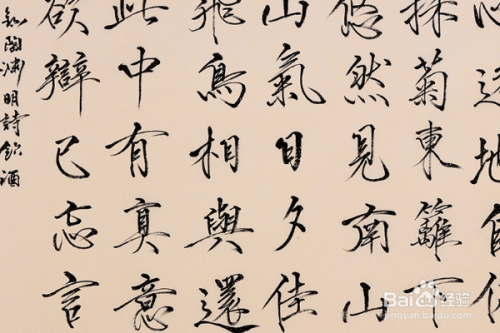 心遠地自
採菊東籬下
悠然見南山
山氣日夕佳
飛鳥相與還
此中有真意
欲辯已忘言
陶淵明詩飲酒
Bai 经验
jingyan.baidu.com